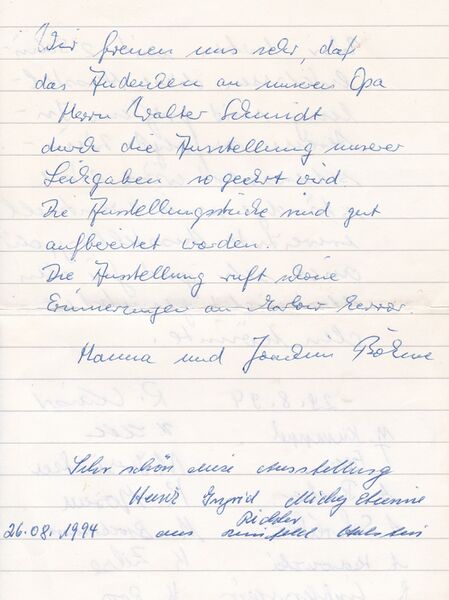 Wir freuen uns sehr, daß
das Andenken an unseren Opa
Herrn Walter Schmidt
durch die Ausstellung unserer
Leihgaben so geehrt wird.
Die Ausstellungsstücke sind gut
aufbereitet worden.
Die Ausstellung ruft schöne
Erinnerungen an hervor.
Hanna und Joachim Böhme
Sehr schön diese Ausstellung
Heinz Ingrid Micky Etienne
Richter
26.08.1994 aus